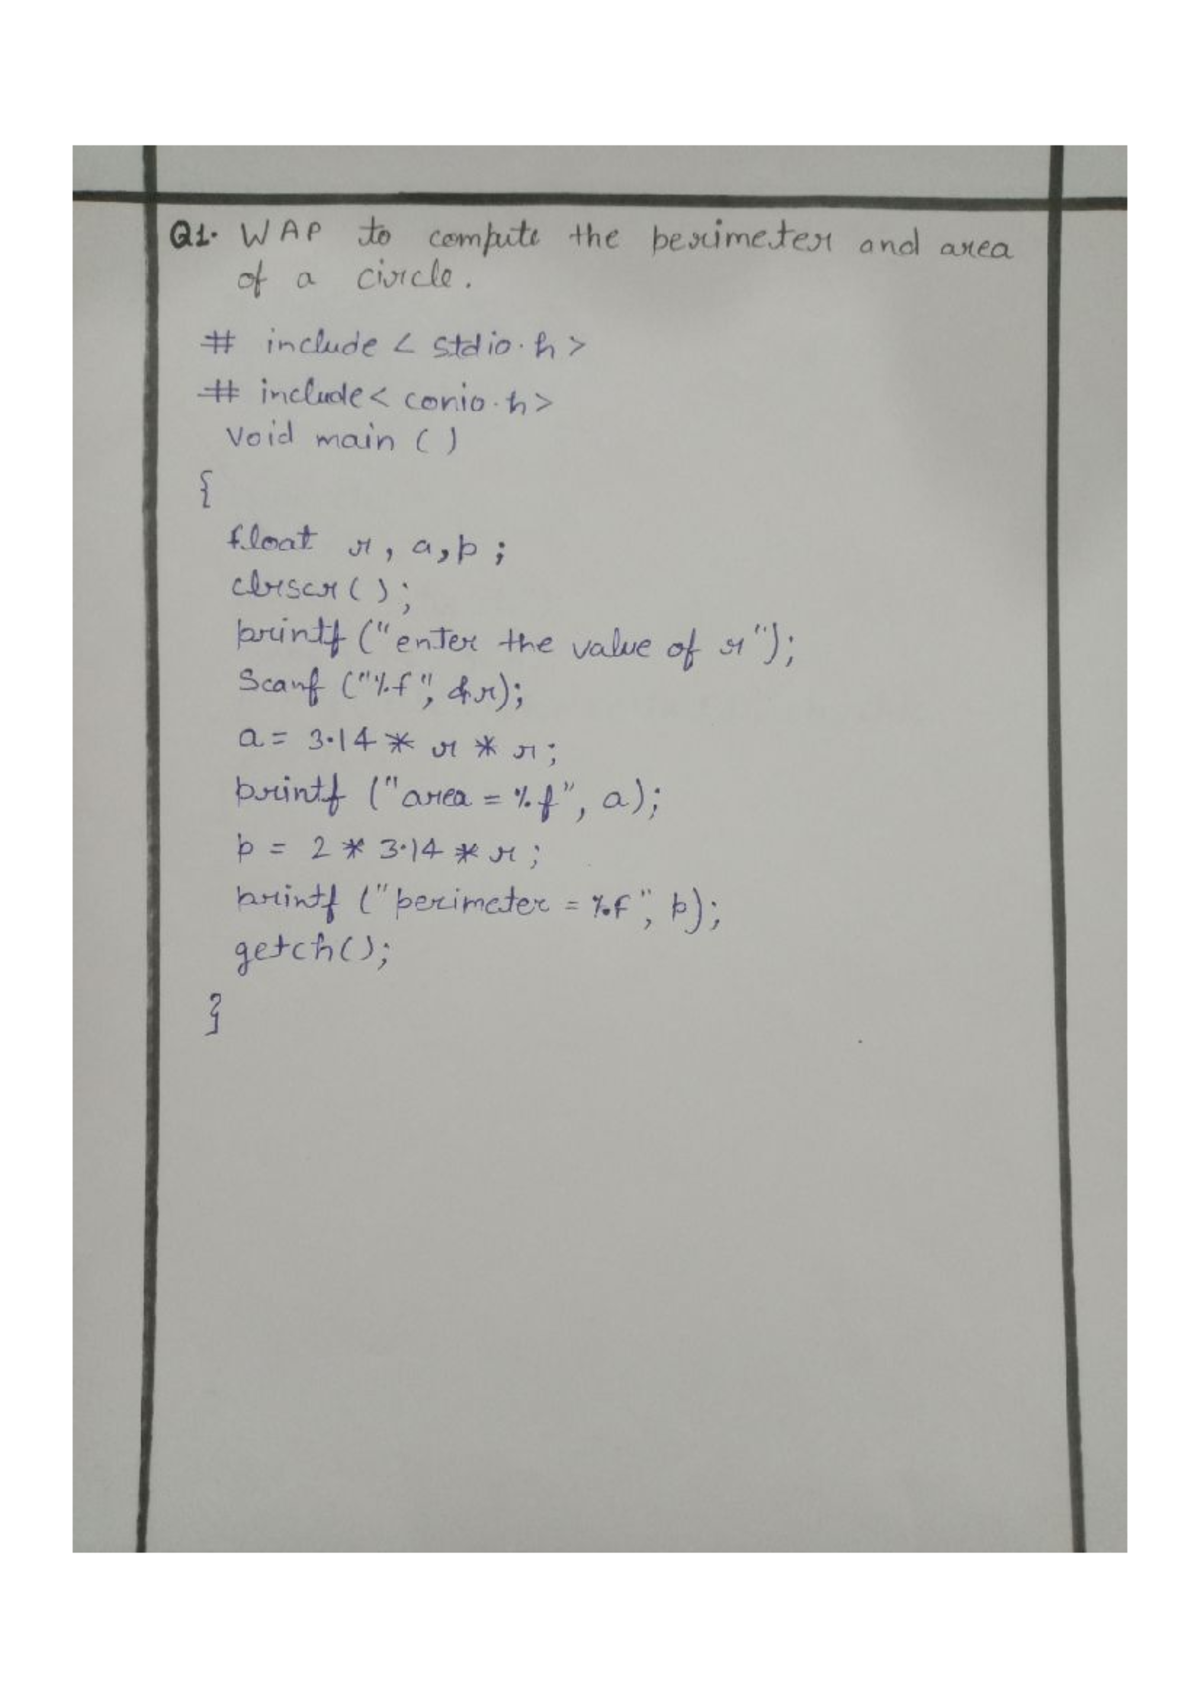 Q1. WAP to compute the perimeter and area
of a circle.
# include < stdio.h >
# include < conio.h >
void main ( )
{
float r, a, p ;
clrscr ( ) ;
printf ("enter the value of r");
Scanf ("%f", &r);
a = 3.14 * r * r ;
printf ("area = %f", a);
p = 2 * 3.14 * r ;
printf ("perimeter = %f", p);
getch();
}